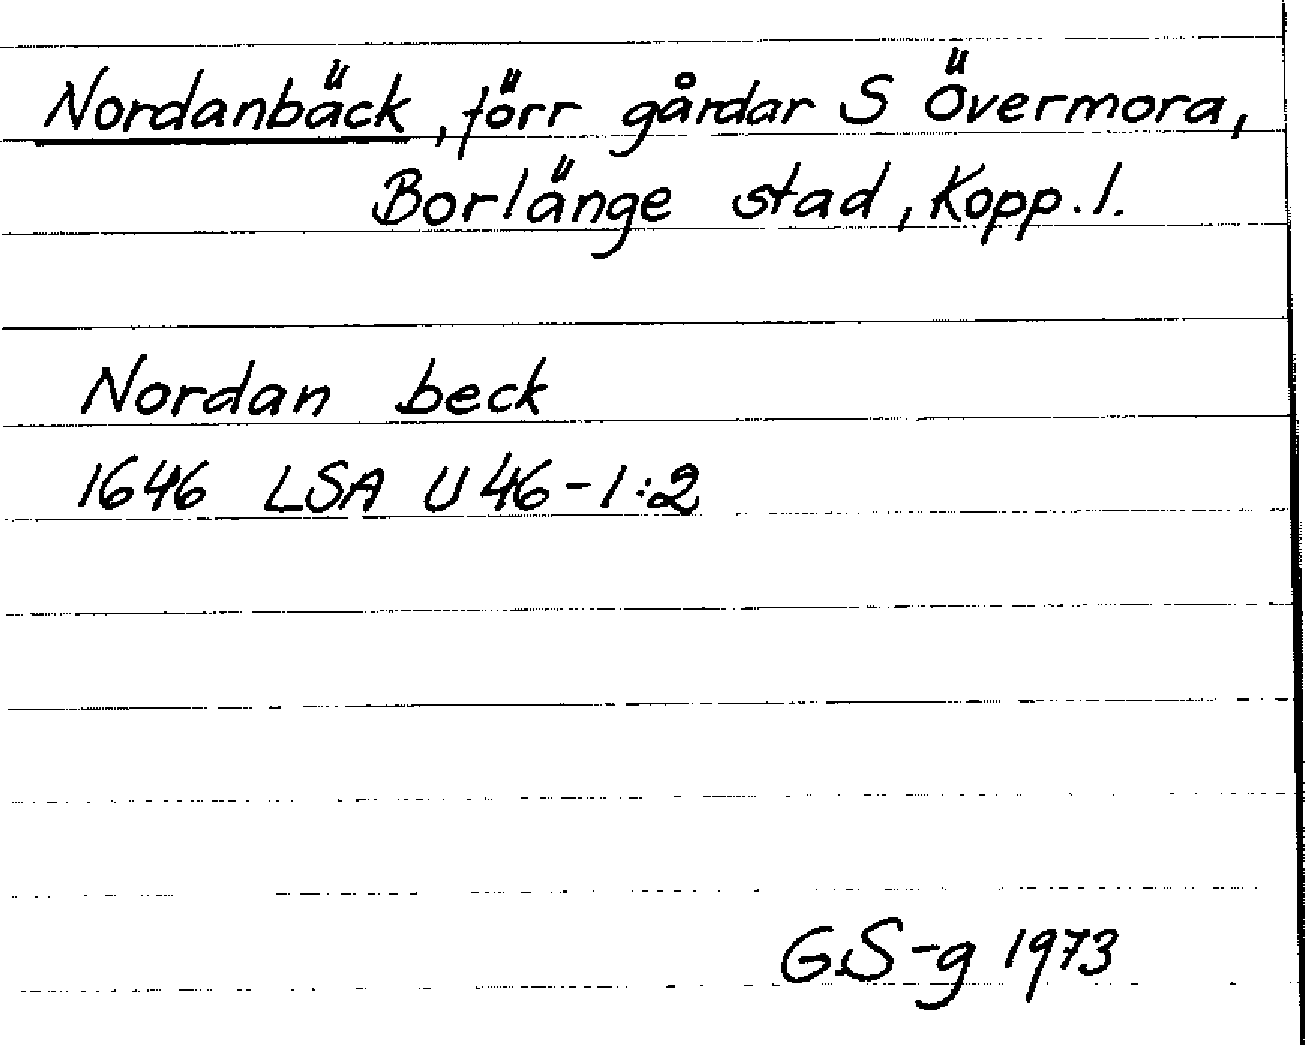 Nordanbäck, förr gårdar S Övermora,
Borlänge stad, Kopp. l.
Nordan beck
1646 LSA U 46-1:2
G.S-g 1973